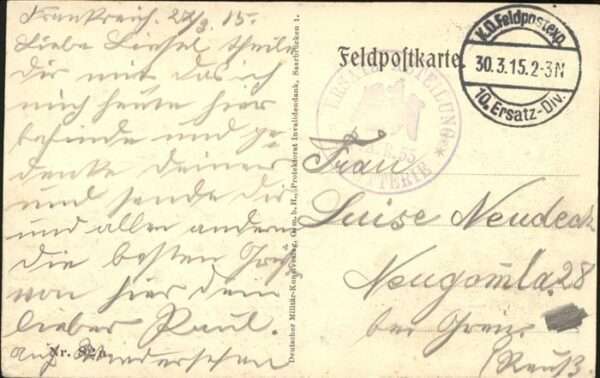 Frankreich. 27/3. 15.
Liebe Liesel, theile
Dir mit das ich
mich heute hier
befinde und ge-
denke Deiner
und sende dir
und allen andern
die besten Grüße
von hier dein
lieber Paul.
Auf Wiedersehen
Nr. 82
Deutscher Militär-Kunstverlag, Ges. m. b. H., Protektorat Invalidendank, Saarbrücken 1.
Feldpostkarte
K.D. Feldpostexp.
30.3.15. 2-3N
10. Ersatz-Div.
ERSATZ ABTEILUNG
55
BATTERIE
Frau
Luise Neudeck
Neugomla. 28
bei Greiz.
(Reuß